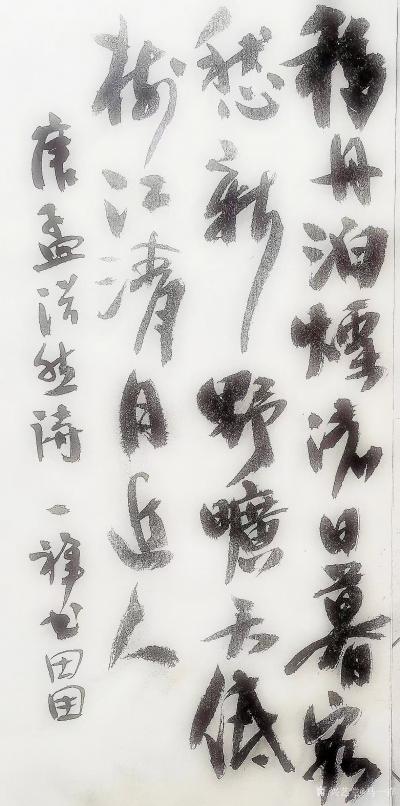 移舟泊煙渚日暮客
愁新野曠天低
樹江清月近人
唐孟浩然詩 一禅书